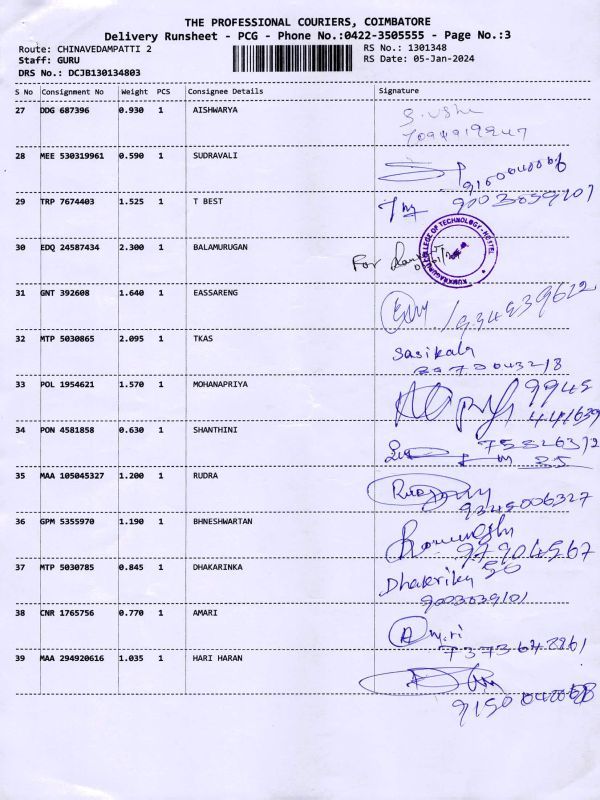 THE PROFESSIONAL COURIERS, COIMBATORE
Delivery Runsheet - PCG - Phone No.:0422-3505555 - Page No.:3
Route: CHINAVEDAMPATTI 2 RS No.: 1301348
Staff: GURU RS Date: 05-Jan-2024
DRS No.: DCJB130134803
S No Consignment No Weight PCS Consignee Details Signature
27 DDG 687396 0.930 1 AISHWARYA
28 MEE 530319961 0.590 1 SUDRAVALI
29 TRP 7674403 1.525 1 T BEST
30 EDQ 24587434 2.300 1 BALAMURUGAN For
KUMARAGURU COLLEGE OF TECHNOLOGY-HOSTEL
31 GNT 392608 1.640 1 EASSARENG
32 MTP 5030865 2.095 1 TKAS Sasikala
33 POL 1954621 1.570 1 MOHANAPRIYA 9945
441639
34 PON 4581858 0.630 1 SHANTHINI
35 MAA 105045327 1.200 1 RUDRA
9345006327
36 GPM 5355970 1.190 1 BHNESHWARTAN
37 MTP 5030785 0.845 1 DHAKARINKA Dhakrika
38 CNR 1765756 0.770 1 AMARI Amari
39 MAA 294920616 1.035 1 HARI HARAN